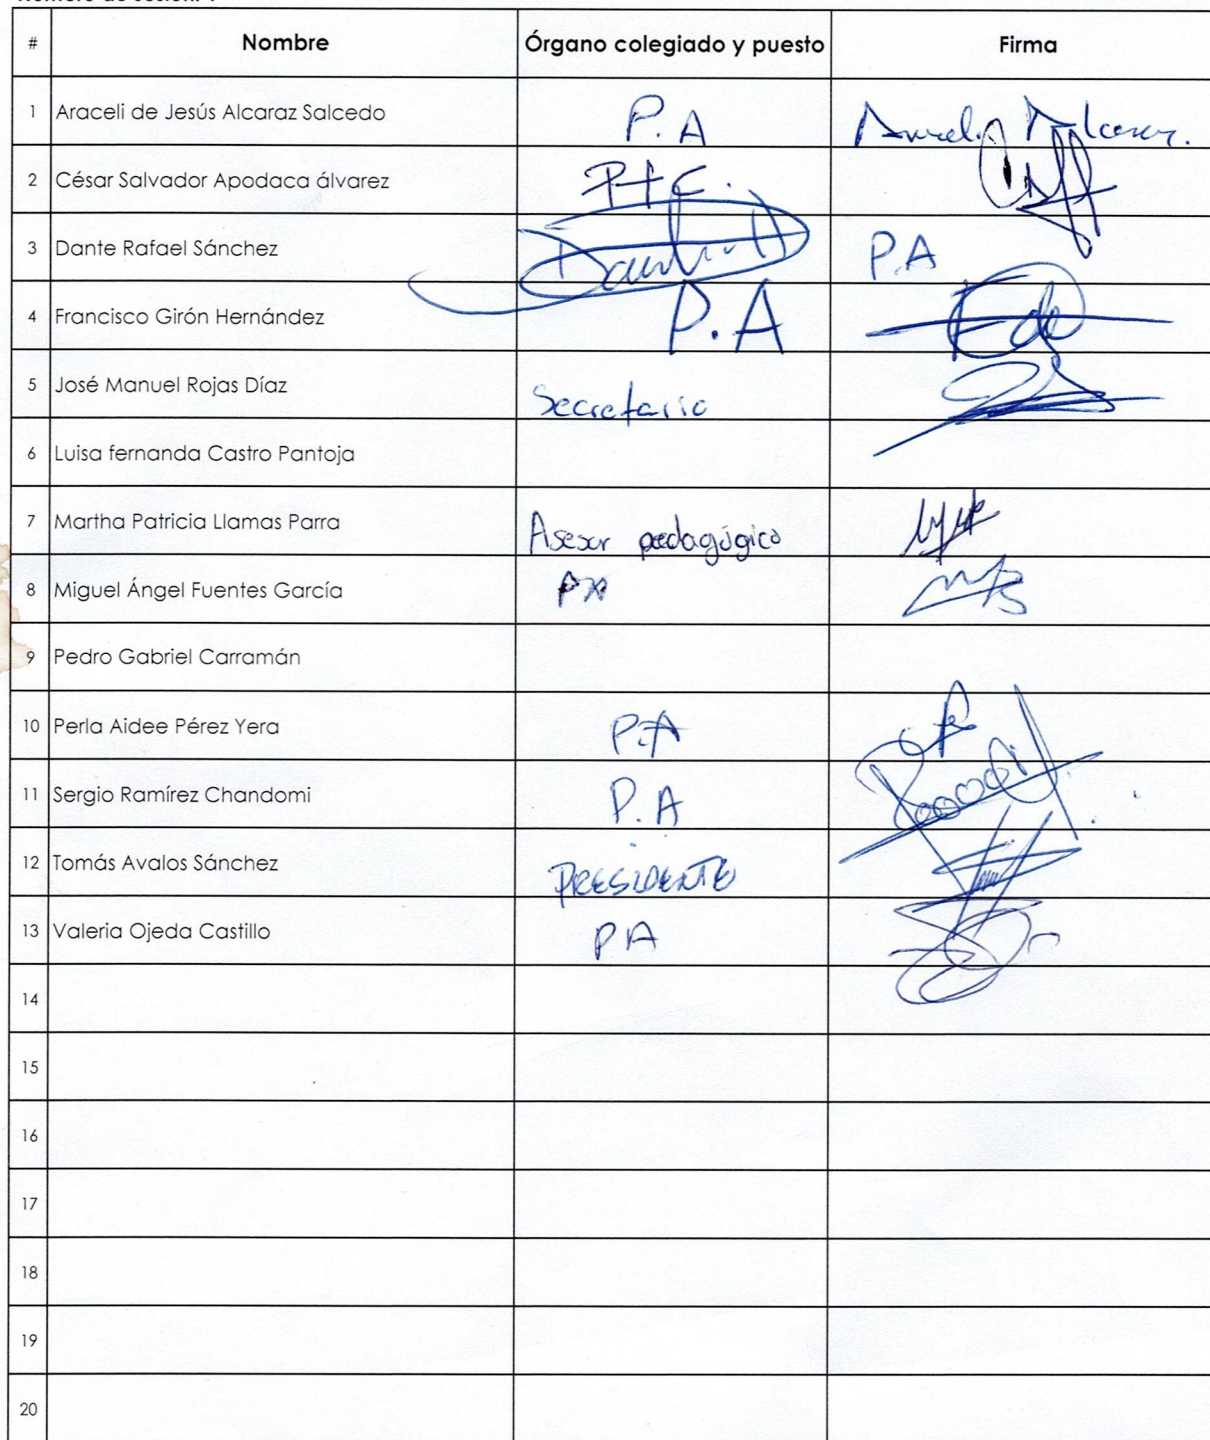 # Nombre Órgano colegiado y puesto Firma
1 Araceli de Jesús Alcaraz Salcedo P.A
2 César Salvador Apodaca álvarez PTC.
3 Dante Rafael Sánchez P.A
4 Francisco Girón Hernández P.A
5 José Manuel Rojas Díaz Secretario
6 Luisa fernanda Castro Pantoja
7 Martha Patricia Llamas Parra Asesor pedagógico
8 Miguel Ángel Fuentes García PA
9 Pedro Gabriel Carramán
10 Perla Aidee Pérez Yera P.A
11 Sergio Ramírez Chandomi P.A
12 Tomás Avalos Sánchez PRESIDENTE
13 Valeria Ojeda Castillo PA
14
15
16
17
18
19
20